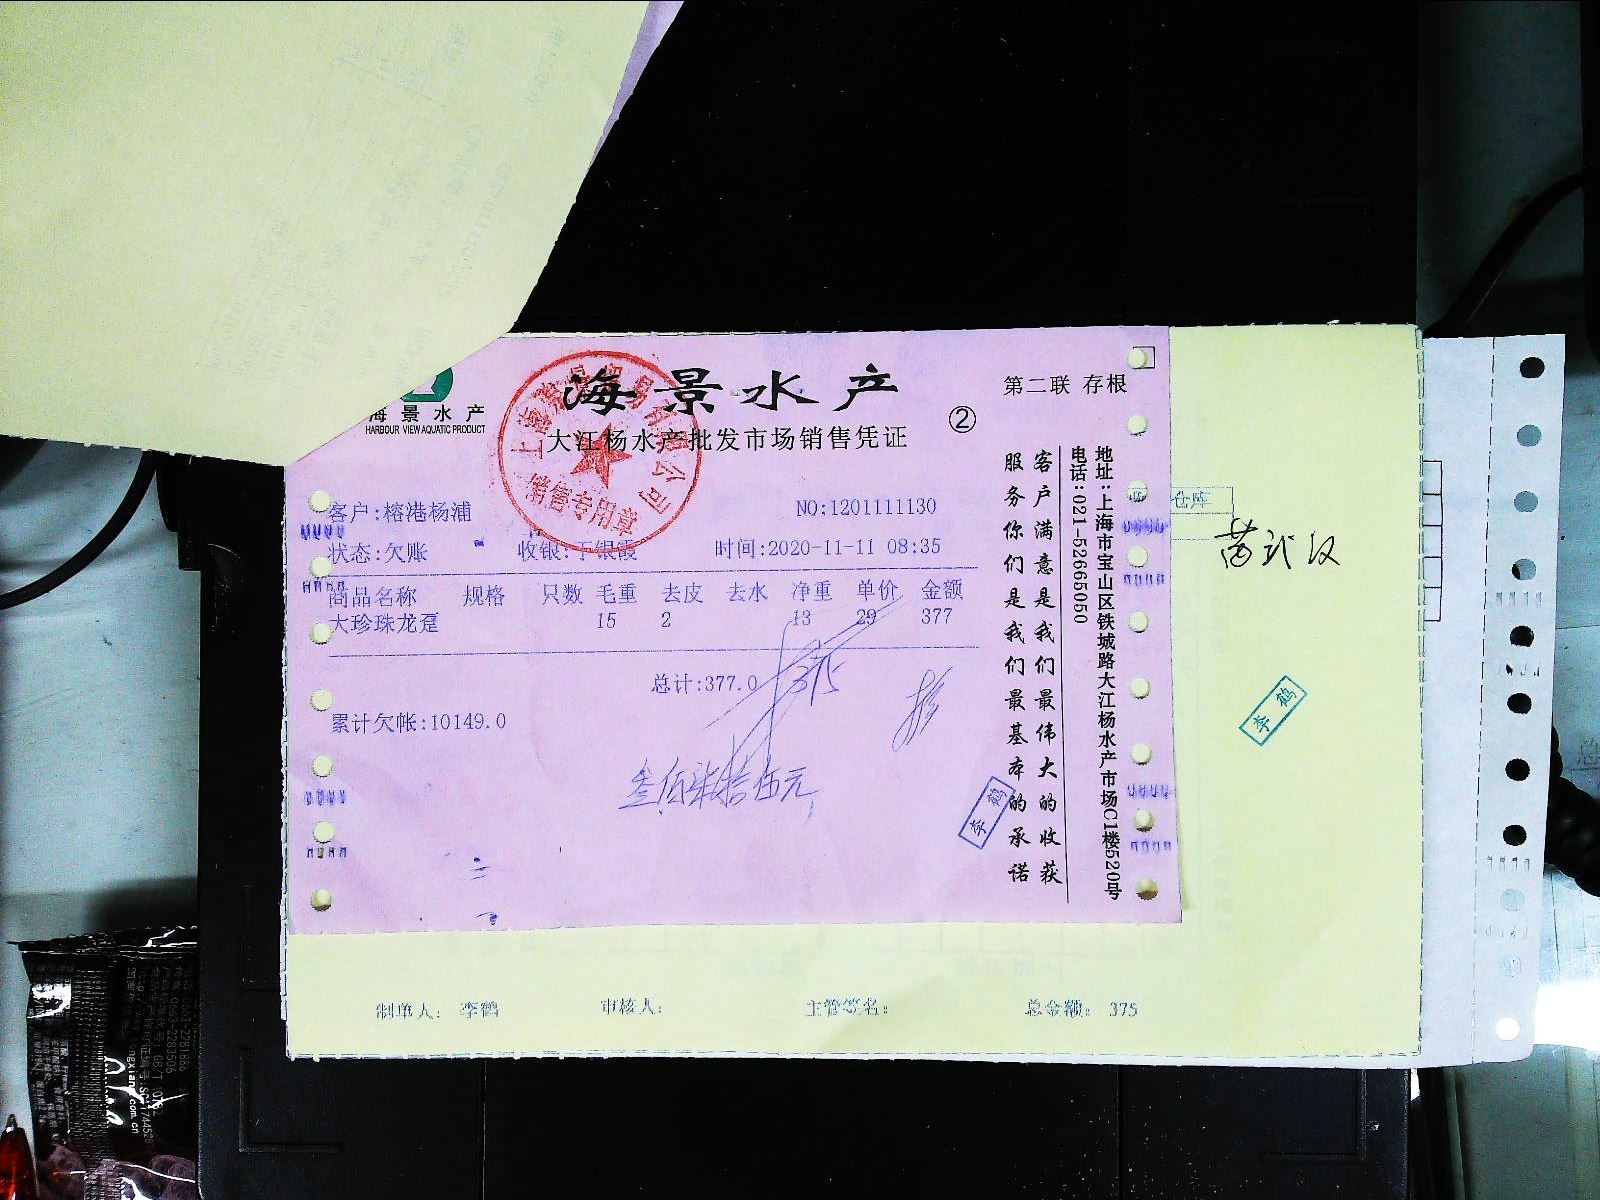 海景水产
HARBOUR VIEW AQUATIC PRODUCT
海景水产
大江杨水产批发市场销售凭证
②
第二联 存根
销售专用章
客户:榕港杨浦
NO:1201111130
状态:欠账
收银:丁银霞
时间:2020-11-11 08:35
商品名称 规格 只数 毛重 去皮 去水 净重 单价 金额
大珍珠龙趸 15 2 13 29 377
总计:377.0
375
累计欠帐:10149.0
叁佰柒拾伍元
李鹤
客户满意是我们最伟大的收获
服务你们是我们最基本的承诺
地址:上海市宝山区铁城路大江杨水产市场C1楼520号
电话:021-52665050
仓库
李鹤
制单人: 李鹤 审核人: 主管签名: 总金额: 375